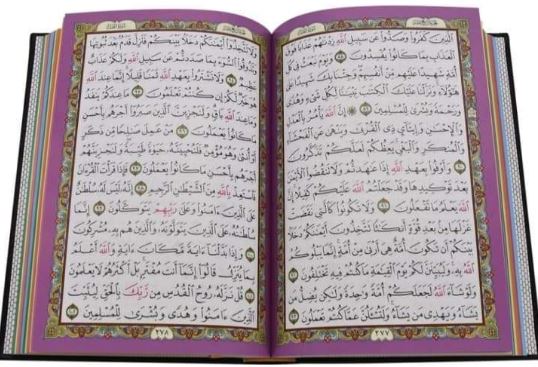 ٱلَّذِينَ كَفَرُواْ وَصَدُّواْ عَن سَبِيلِ ٱللَّهِ زِدْنَٰهُمْ عَذَابًا فَوْقَ
ٱلْعَذَابِ بِمَا كَانُواْ يُفْسِدُونَ ٨٨ وَيَوْمَ نَبْعَثُ فِى كُلِّ
أُمَّةٍ شَهِيدًا عَلَيْهِم مِّنْ أَنفُسِهِمْ وَجِئْنَا بِكَ شَهِيدًا عَلَىٰ
هَٰٓؤُلَآءِ وَنَزَّلْنَا عَلَيْكَ ٱلْكِتَٰبَ تِبْيَٰنًا لِّكُلِّ شَىْءٍ وَهُدًى
وَرَحْمَةً وَبُشْرَىٰ لِلْمُسْلِمِينَ ٨٩ إِنَّ ٱللَّهَ يَأْمُرُ بِٱلْعَدْلِ
وَٱلْإِحْسَٰنِ وَإِيتَآئِ ذِى ٱلْقُرْبَىٰ وَيَنْهَىٰ عَنِ ٱلْفَحْشَآءِ
وَٱلْمُنكَرِ وَٱلْبَغْىِ يَعِظُكُمْ لَعَلَّكُمْ تَذَكَّرُونَ
٩٠ وَأَوْفُواْ بِعَهْدِ ٱللَّهِ إِذَا عَٰهَدتُّمْ وَلَا تَنقُضُواْ ٱلْأَيْمَٰنَ
بَعْدَ تَوْكِيدِهَا وَقَدْ جَعَلْتُمُ ٱللَّهَ عَلَيْكُمْ كَفِيلًا إِنَّ
ٱللَّهَ يَعْلَمُ مَا تَفْعَلُونَ ٩١ وَلَا تَكُونُواْ كَٱلَّتِى نَقَضَتْ
غَزْلَهَا مِنۢ بَعْدِ قُوَّةٍ أَنكَٰثًا تَتَّخِذُونَ أَيْمَٰنَكُمْ دَخَلًۢا
بَيْنَكُمْ أَن تَكُونَ أُمَّةٌ هِىَ أَرْبَىٰ مِنْ أُمَّةٍ إِنَّمَا يَبْلُوكُمُ
ٱللَّهُ بِهِۦ وَلَيُبَيِّنَنَّ لَكُمْ يَوْمَ ٱلْقِيَٰمَةِ مَا كُنتُمْ فِيهِ تَخْتَلِفُونَ
٩٢ وَلَوْ شَآءَ ٱللَّهُ لَجَعَلَكُمْ أُمَّةً وَٰحِدَةً وَلَٰكِن يُضِلُّ مَن
يَشَآءُ وَيَهْدِى مَن يَشَآءُ وَلَتُسْـَٔلُنَّ عَمَّا كُنتُمْ تَعْمَلُونَ ٩٣
٢٧٧
وَلَا تَتَّخِذُوٓاْ أَيْمَٰنَكُمْ دَخَلًۢا بَيْنَكُمْ فَتَزِلَّ قَدَمٌۢ بَعْدَ ثُبُوتِهَا
وَتَذُوقُواْ ٱلسُّوٓءَ بِمَا صَدَدتُّمْ عَن سَبِيلِ ٱللَّهِ وَلَكُمْ عَذَابٌ
عَظِيمٌ ٩٤ وَلَا تَشْتَرُواْ بِعَهْدِ ٱللَّهِ ثَمَنًا قَلِيلًا إِنَّمَا عِندَ ٱللَّهِ
هُوَ خَيْرٌ لَّكُمْ إِن كُنتُمْ تَعْلَمُونَ ٩٥ مَا عِندَكُمْ يَنفَدُ
وَمَا عِندَ ٱللَّهِ بَاقٍ وَلَنَجْزِيَنَّ ٱلَّذِينَ صَبَرُوٓاْ أَجْرَهُم بِأَحْسَنِ
مَا كَانُواْ يَعْمَلُونَ ٩٦ مَنْ عَمِلَ صَٰلِحًا مِّن ذَكَرٍ
أَوْ أُنثَىٰ وَهُوَ مُؤْمِنٌ فَلَنُحْيِيَنَّهُۥ حَيَوٰةً طَيِّبَةً وَلَنَجْزِيَنَّهُمْ
أَجْرَهُم بِأَحْسَنِ مَا كَانُواْ يَعْمَلُونَ ٩٧ فَإِذَا قَرَأْتَ ٱلْقُرْءَانَ
فَٱسْتَعِذْ بِٱللَّهِ مِنَ ٱلشَّيْطَٰنِ ٱلرَّجِيمِ ٩٨ إِنَّهُۥ لَيْسَ لَهُۥ سُلْطَٰنٌ
عَلَى ٱلَّذِينَ ءَامَنُواْ وَعَلَىٰ رَبِّهِمْ يَتَوَكَّلُونَ ٩٩ إِنَّمَا
سُلْطَٰنُهُۥ عَلَى ٱلَّذِينَ يَتَوَلَّوْنَهُۥ وَٱلَّذِينَ هُم بِهِۦ مُشْرِكُونَ
١٠٠ وَإِذَا بَدَّلْنَآ ءَايَةً مَّكَانَ ءَايَةٍ وَٱللَّهُ أَعْلَمُ
بِمَا يُنَزِّلُ قَالُوٓاْ إِنَّمَآ أَنتَ مُفْتَرٍۭ بَلْ أَكْثَرُهُمْ لَا يَعْلَمُونَ
١٠١ قُلْ نَزَّلَهُۥ رُوحُ ٱلْقُدُسِ مِن رَّبِّكَ بِٱلْحَقِّ لِيُثَبِّتَ
ٱلَّذِينَ ءَامَنُواْ وَهُدًى وَبُشْرَىٰ لِلْمُسْلِمِينَ ١٠٢
٢٧٨